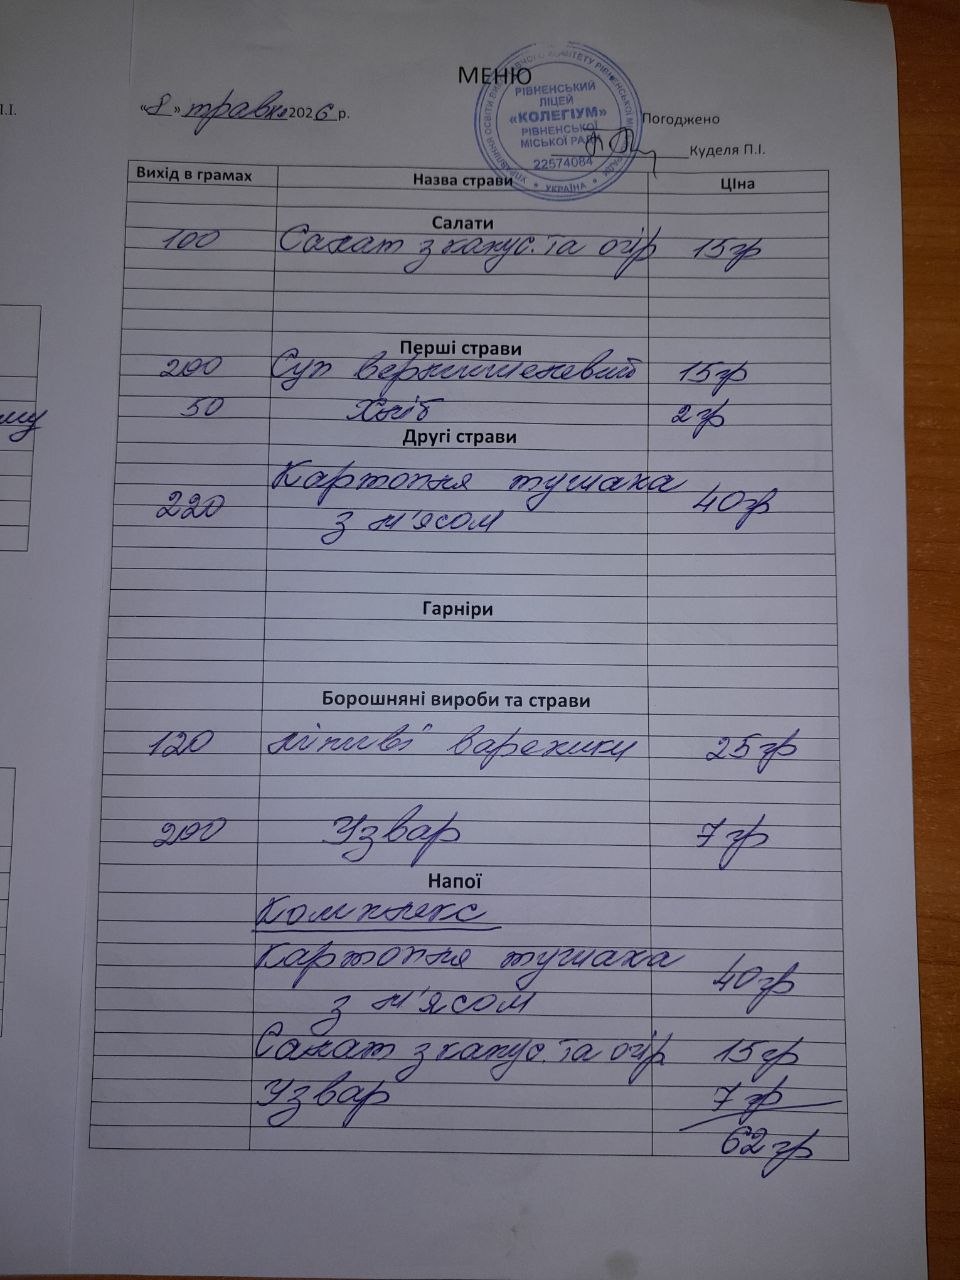 МЕНЮ
І.І.
«8» травня 2026 р.
Погоджено
Куделя П.І.
РІВНЕНСЬКИЙ
ЛІЦЕЙ
«КОЛЕГІУМ»
РІВНЕНСЬКОЇ
МІСЬКОЇ РАДИ
22574084
УКРАЇНА
Вихід в грамах Назва страви ЦІна
Салати
100 Салат з капус. та огір 15гр
Перші страви
200 Суп вермишелевий 15гр
50 Хліб 2гр
му
Другі страви
Картопля тушана
220 з м'ясом 40гр
Гарніри
Борошняні вироби та страви
120 ліниві вареники 25гр
200 Узвар 7гр
Напої
Комплекс
Картопля тушана
з м'ясом 40гр
Салат з капус. та огір 15гр
Узвар 7гр
62гр